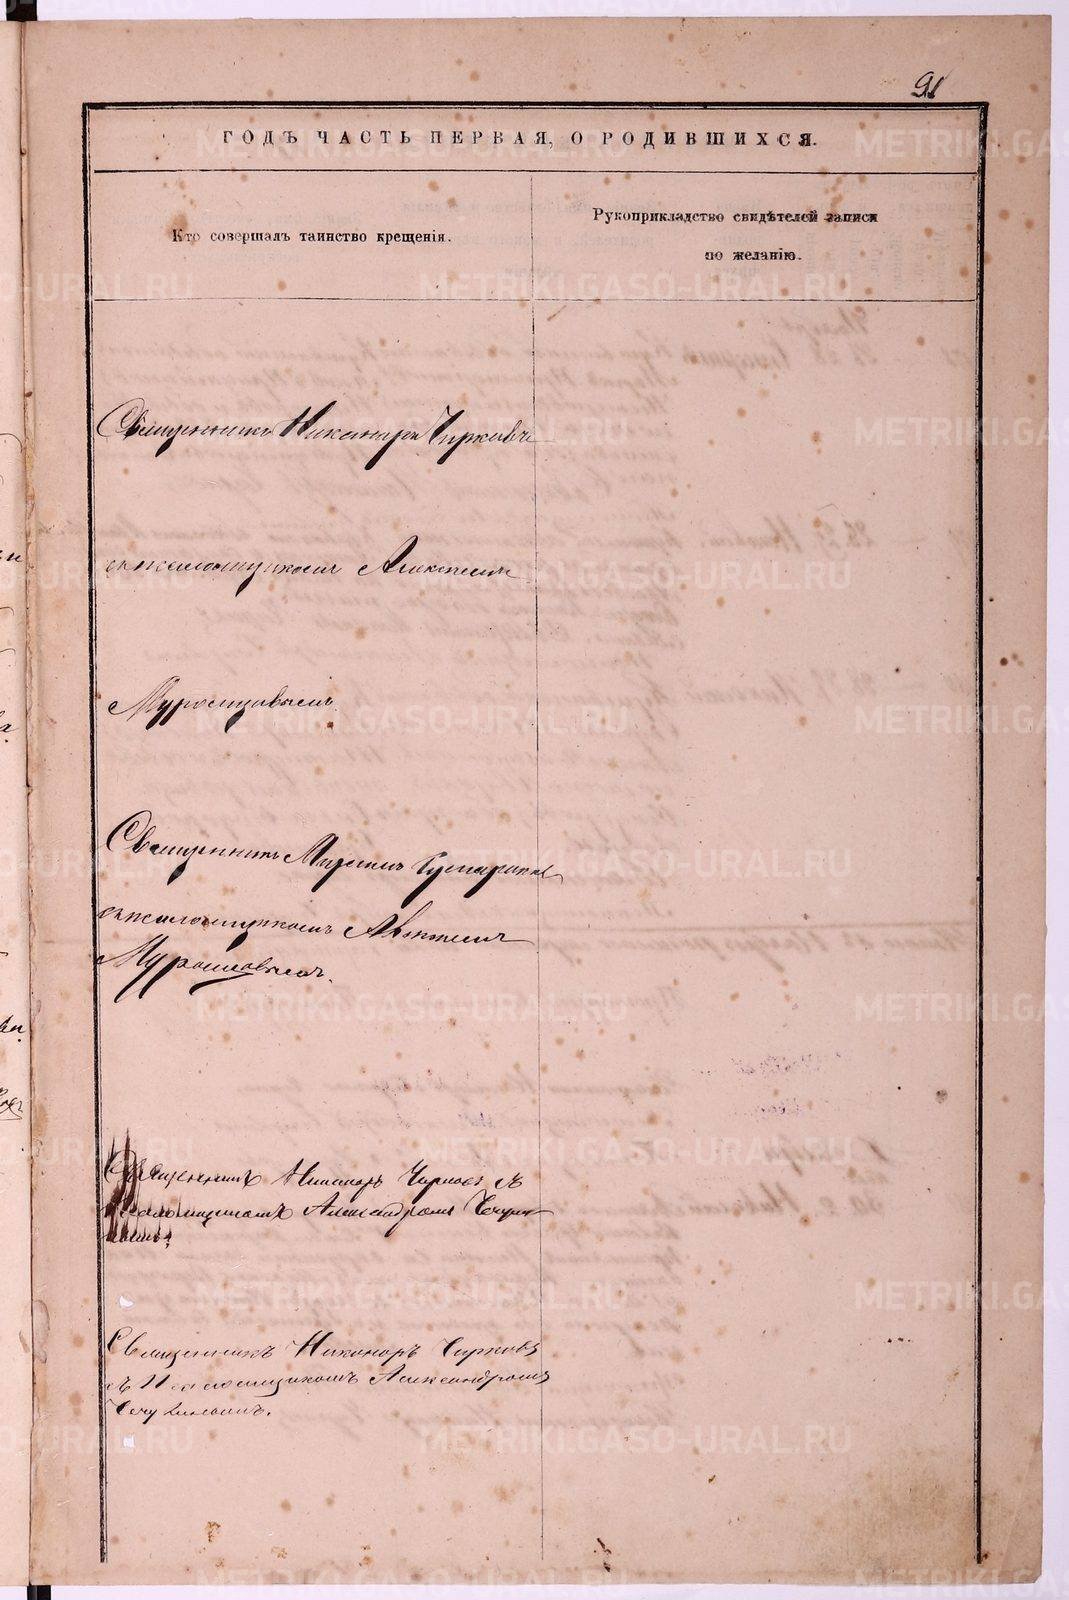 91
ГОДЪ ЧАСТЬ ПЕРВАЯ, О РОДИВШИХСЯ.
Кто совершалъ таинство крещенія.
Рукоприкладство свидѣтелей записи
по желанію.
Священникъ Никаноръ Чирковъ
съ псаломщикомъ Алексѣемъ
Священникъ
съ псаломщикомъ Алексѣемъ
Священникъ Никаноръ Чирковъ съ
псаломщикомъ Александромъ
Священникъ Никаноръ Чирковъ
съ псаломщикомъ Александромъ
METRIKI.GASO-URAL.RU